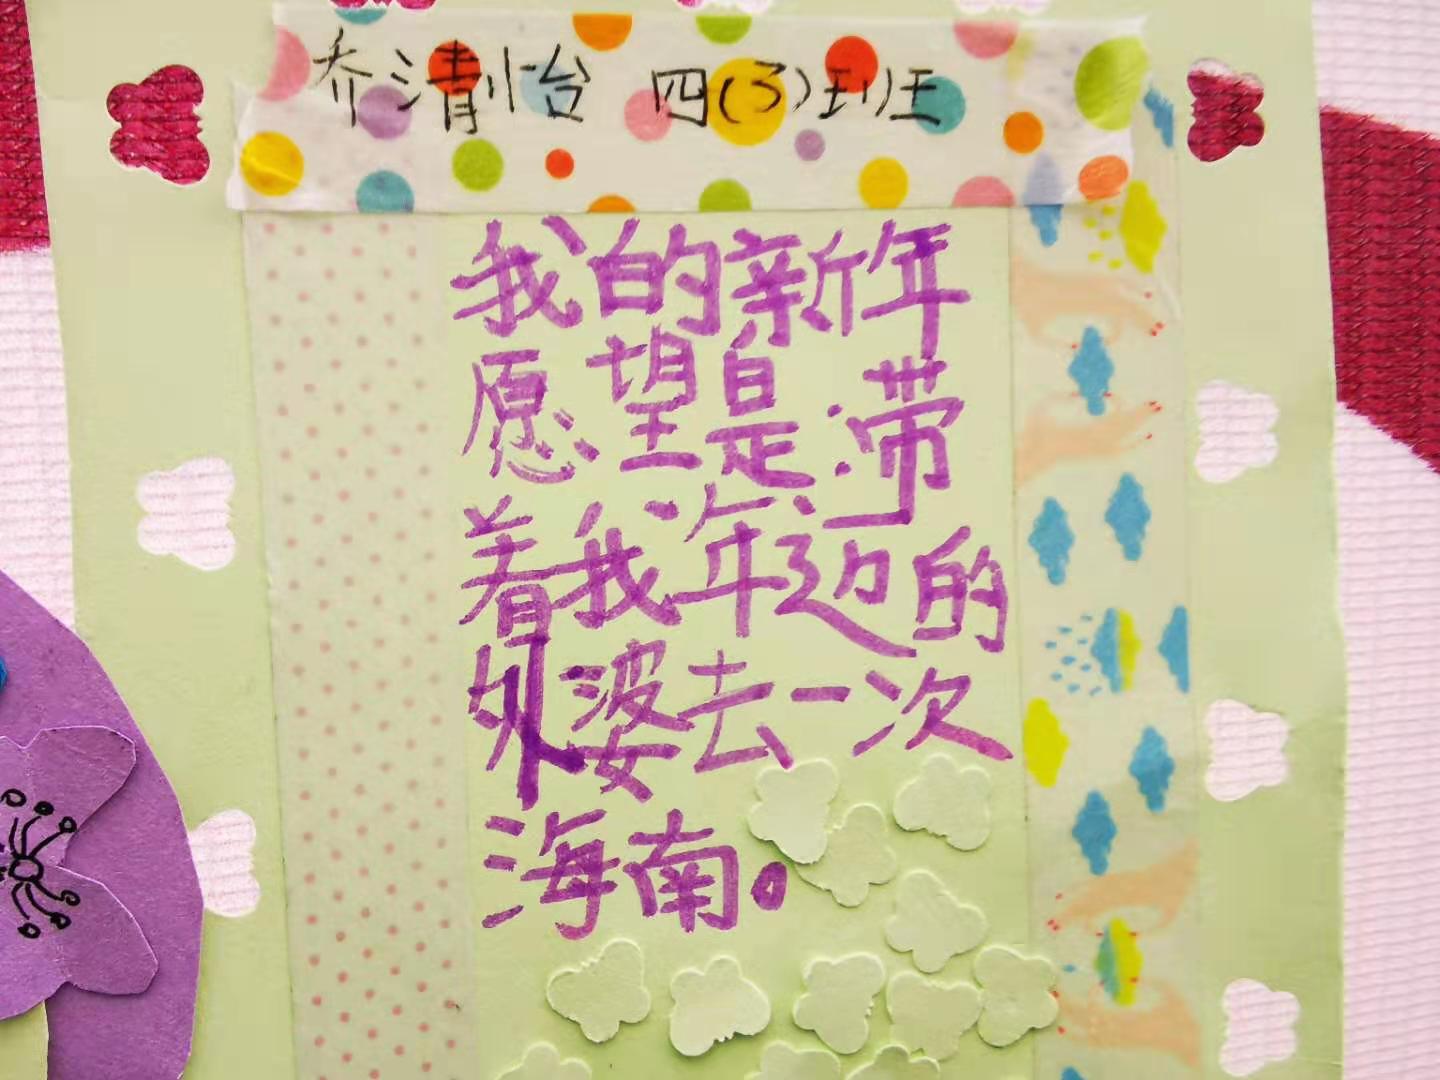 乔清怡 四(3)班
我的新年
愿望是:带
着我年迈的
外婆去一次
海南。